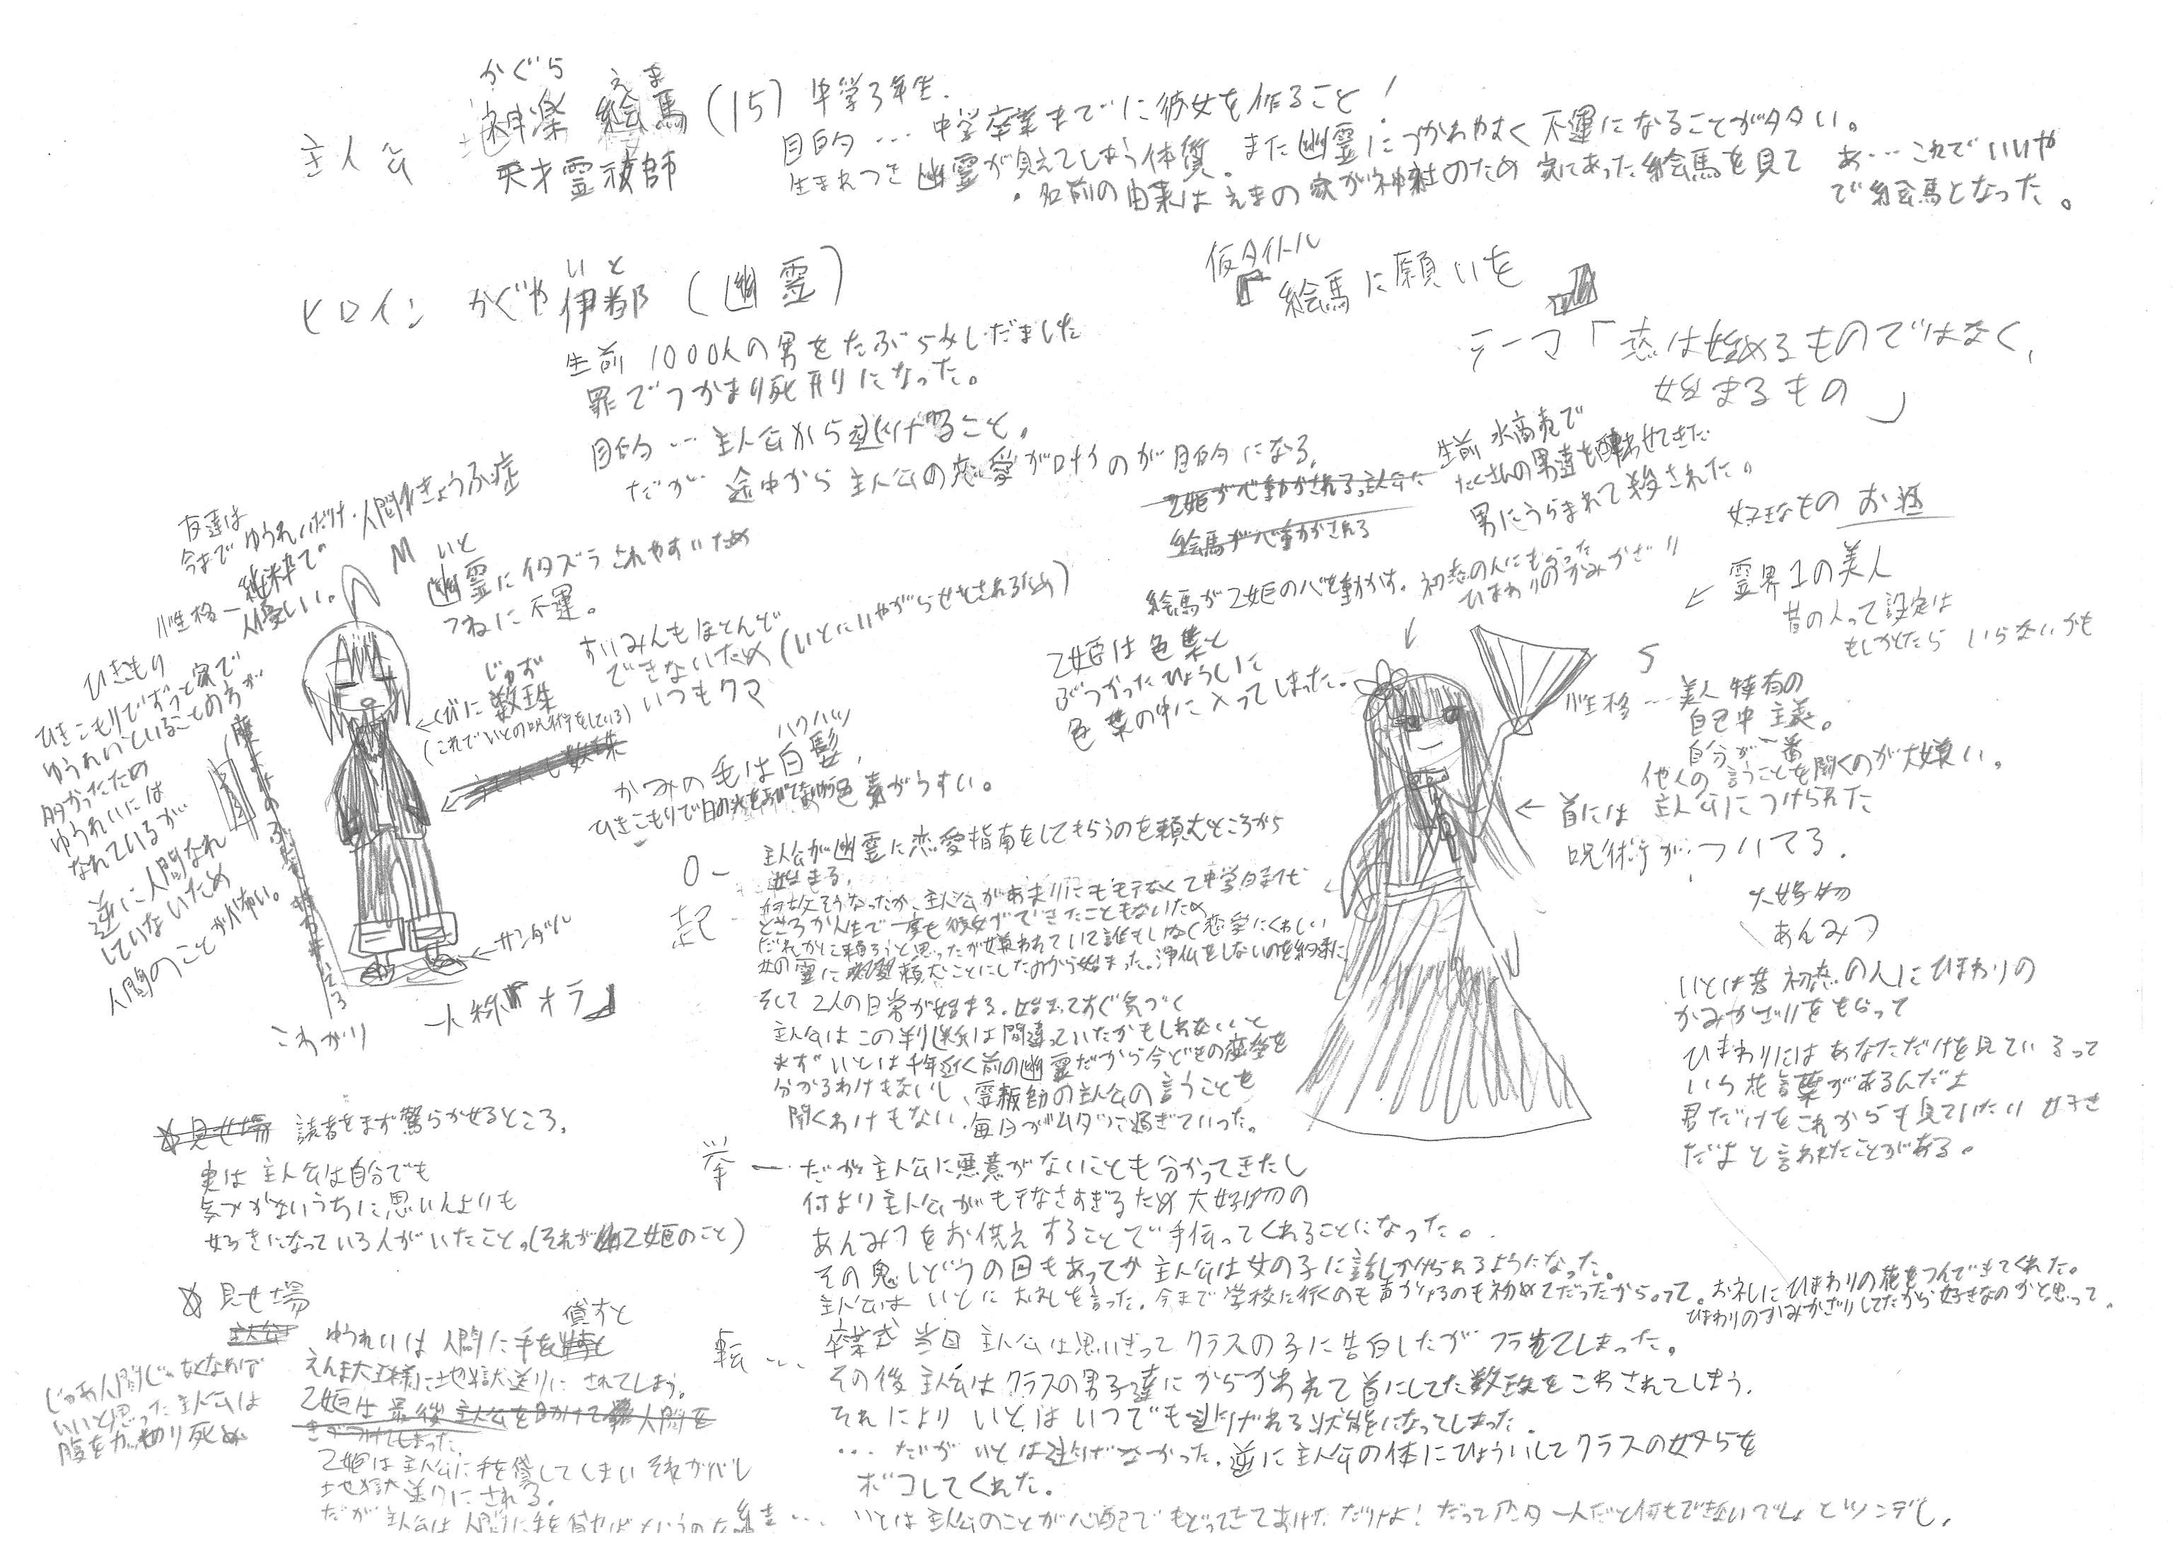 かぐら えま
主人公 神楽 絵馬 (15) 中学3年生.
天才霊祓師
目的 … 中学卒業までに彼女を作ること!
生まれつき幽霊が見えてしまう体質。また幽霊につかれやすく不運になることが多い。
・名前の由来はえまの家が神社のため家にあった絵馬を見て あ…これでいいや
で絵馬となった。
仮タイトル
『絵馬に願いを』
テーマ「恋は始めるものではなく、
始まるもの」
いと
ヒロイン かぐや 伊都 (幽霊)
生前 1000人の男をたぶらかしだました
罪でつかまり死刑になった。
目的 … 主人公から逃げること。
だが 途中から主人公の恋愛が のが目的になる。
乙姫が心動かされる主人公に
絵馬が心動かされる
絵馬が乙姫の心を動かす。
生前 水商売で
たくさんの男達を酔わせてきた
男にうらまれて殺された。
好きなもの お酒
← 霊界1の美人
昔の人って設定は
もしかしたら いらないかも
初恋の人にもらった
ひまわりのかみかざり
乙姫は色葉と
ぶつかったひょうしに
色葉の中に入ってしまった。
S
性格 … 美人特有の
自己中主義。
自分が一番
他人の言うことを聞くのが大嫌い。
← 首には主人公につけられた
呪術が ついてる.
大好物
あんみつ
いとは昔初恋の人にひまわりの
かみかざりをもらって
ひまわりにはあなただけを見ているって
いう花言葉があるんだよ
君だけをこれからも見ていたい 好き
だよと言われたことがある。
友達は
今まで ゆうれいだけ・人間きょうふ症
性格 ー 純粋で
優しい。
M
いと
幽霊にイタズラされやすいため
つねに不運。
すいみんもほとんど
できないため (いとにいやがらせをされるため)
いつもクマ
じゅず
←くびに数珠
(これでいとの呪術をしている)
ハクハツ
かみの毛は白髪,
ひきこもりで日の光をあびてないから色素がうすい。
ひきこもり
ひきこもりでずっと家で
ゆうれいといることの方が
多かったため
ゆうれいには
なれているが
逆に人間なれ
していないため
人間のことが怖い。
←サンダル
こわがり
一人称『オラ』
0ー 主人公が幽霊に恋愛指南をしてもらうのを頼むところから
始まる。
起 ー 何故そうなったか、主人公があまりにもモテなくて中学
ところか人生で一度も彼女ができたこともないため
だれかに頼ろうと思ったが嫌われていて誰もいなく恋愛にくわしい
女の霊に頼むことにしたのから始まった。浄仏をしないのを約束に
そして2人の日常が始まる。始まってすぐ気づく
主人公はこの判断は間違っていたかもしれないと
まずいとは千年近く前の幽霊だから今どきの恋愛を
分かるわけもないし、霊祓師の主人公の言うことを
聞くわけもない。毎日がムダに過ぎていった。
挙 ー だが主人公に悪意がないことも分かってきたし
何より主人公がモテなさすぎるため 大好物の
あんみつをお供えすることで手伝ってくれることになった。
その鬼しどうの回もあってか 主人公は女の子に話しかけられるようになった。
主人公は いとに お礼を言った. 今まで学校に行くのも声かけるのも初めてだったからって。お礼にひまわりの花をつんできてくれた。
ひまわりのかみかざりしてたから好きなのかと思って。
転 … 卒業式 当日 主人公は思いきってクラスの子に告白したが フラれてしまった。
その後主人公はクラスの男子達にからかわれて首にしてた数珠をこわされてしまう。
それにより いとは いつでも逃げれる状態になってしまった.
… だが いとは逃げなかった. 逆に主人公の体にひょういしてクラスの奴らを
ボコしてくれた。
結 … いとは主人公のことが心配でもどってきてあげただけよ! だってアンタ一人だと何もできないでしょとツンデレ.
☆見せ場 読者をまず驚らかせるところ.
実は 主人公は自分でも
気づかないうちに思い人よりも
好きになっている人がいたこと。(それが乙姫のこと)
☆ 見せ場
主人公
ゆうれいは人間に手を貸すと
えんま大王様に地獄送りにされてしまう。
乙姫は最後主人公を助けて人間を
きずつけてしまった.
乙姫は主人公に手を貸してしまい それがバレ
地獄送りにされる.
だが主人公は人間に手を貸せばというのなら
じゃあ人間じゃなくなれば
いいと思った主人公は
腹をかっ切り死ぬ